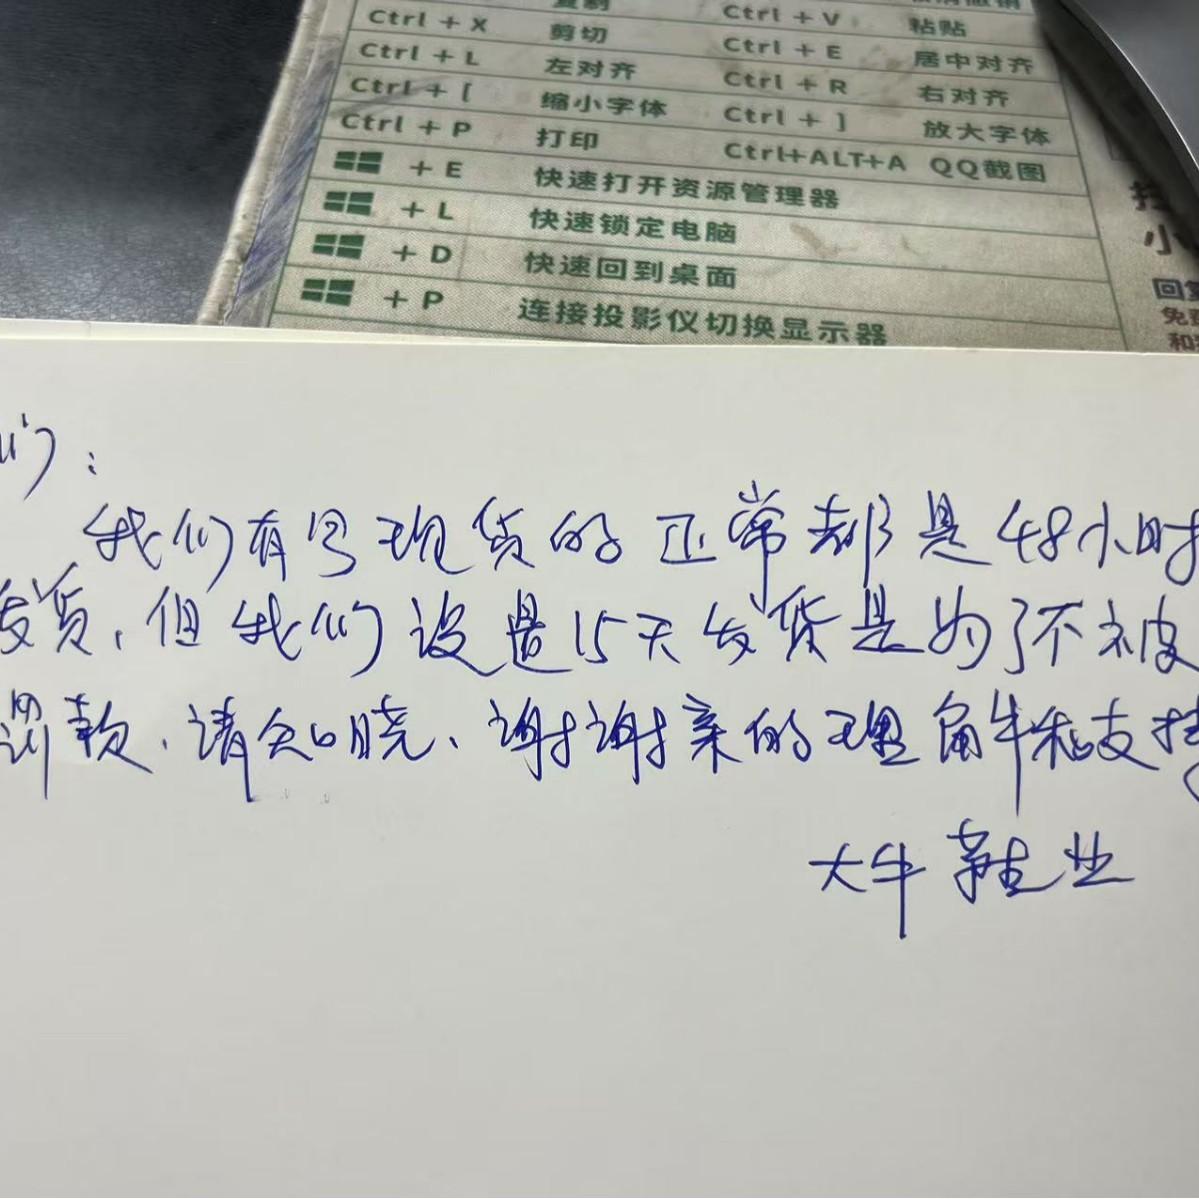 复制
Ctrl + X 剪切 Ctrl + V 粘贴
Ctrl + L 左对齐 Ctrl + E 居中对齐
Ctrl + [ 缩小字体 Ctrl + R 右对齐
Ctrl + P 打印 Ctrl + ] 放大字体
Ctrl+ALT+A QQ截图
+ E 快速打开资源管理器
+ L 快速锁定电脑
+ D 快速回到桌面
+ P 连接投影仪切换显示器
小
回复
免费
和
们：
我们有号现货的正常都是48小时
发货，但我们设置15天发货是为了不被
罚款，请知晓、谢谢亲的理解和支持
大牛鞋业